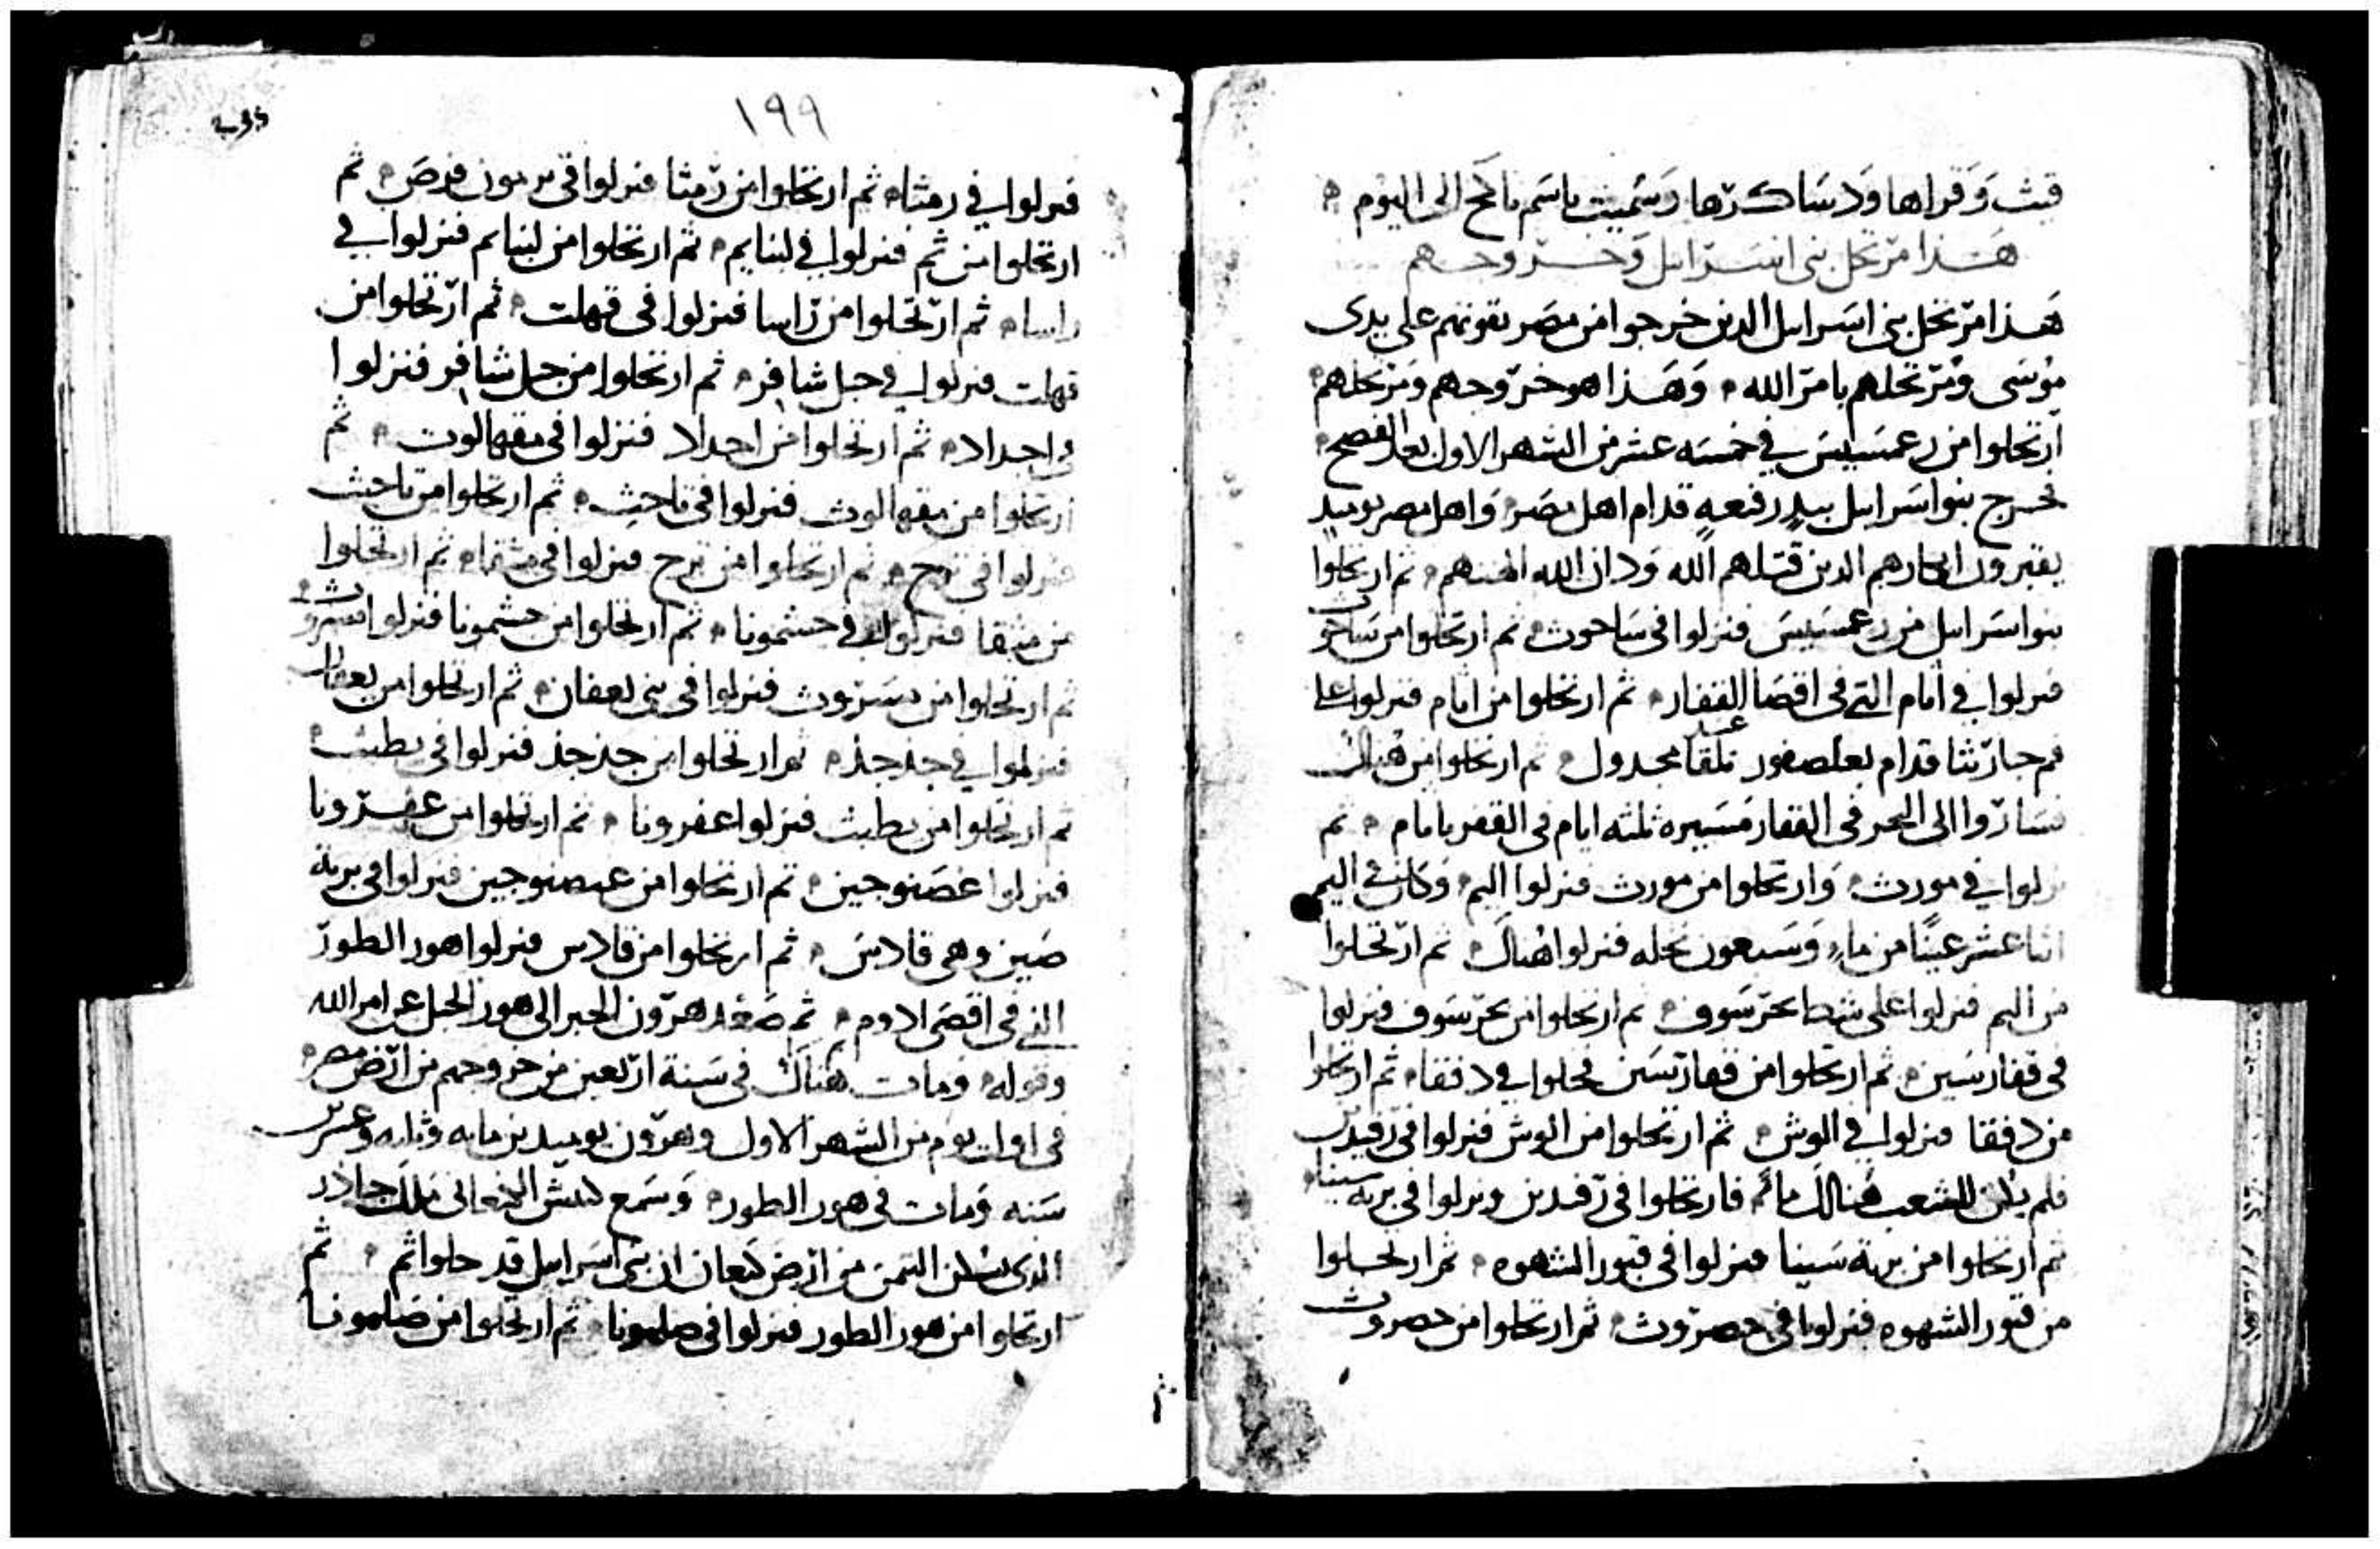 قنث وَقراها وَدساكرها وَسُميت باسم نابح الى اليوم
هَذا مرتحل بنى اسرايل وَخروجهم
هَذا مرتحل بنى اسرايل الدين خرجوا من مصر بقوتهم على يدى
موسى وَمرتحلهم بامر الله وَهَذا هو خروجهم ومرتحلهم
ارتحلوا من رعمسيس في خمسه عشر من الشهر الاول بعد الفصح
فخرج بنوا اسرايل بيدٍ رفعهٍ قدام اهل مصر وَاهل مصر يوميد
يقبرون ابكارهم الدين قتلهم الله وَدان الله الهتهم ثم ارتحلوا
بنوا اسرايل من رعمسيس فنزلوا فى ساحوث ثم ارتحلوا من ساحوث
فنزلوا في اثام التي فى اقصا القفار ثم ارتحلوا من اثام فنزلوا على
فم حارثثا قدام بعلصفور تلقا مجدول ثم ارتحلوا من هُناك
فساروا الى البحر فى القفار مَسيره ثلثه ايام فى القفر باثام ثم
نزلوا في مورث وَارتحلوا من مورث فنزلوا اليم وَكان في اليم
اثنا عشر عينًا من ماءٍ وَسبعون نخله فنزلوا هُناك ثم ارتحلوا
من اليم فنزلوا على شط بحر سَوف ثم ارتحلوا من بحر سَوف فنزلوا
فى قفار سين ثم ارتحلوا من قفار سين فحلوا في دفقا ثم ارتحلوا
من دفقا فنزلوا في الوش ثم ارتحلوا من الوش فنزلوا فى رفيدين
فلم يكن للشعب هُنالك ماءٌ فارتحلوا فى رفيدين ونزلوا فى برية سينا
ثم ارتحلوا من برية سينا فنزلوا فى قبور الشهوه ثم ارتحلوا
من قبور الشهوه فنزلوا فى حصروث ثم ارتحلوا من حصروث
١٩٩
فنزلوا في رمثا ثم ارتحلوا من رمثا فنزلوا فى رمون فرص ثم
ارتحلوا من ثم فنزلوا في لبنايم ثم ارتحلوا من لبنايم فنزلوا في
راسا ثم ارتحلوا من راسا فنزلوا فى قهلت ثم ارتحلوا من
قهلت فنزلوا في جبل شافر ثم ارتحلوا من جبل شافر فنزلوا
في احدادا ثم ارتحلوا من احدادا فنزلوا فى مقهالوت ثم
ارتحلوا من مقهالوث فنزلوا فى تاحيث ثم ارتحلوا من تاحيث
فنزلوا فى ترح ثم ارتحلوا من ترح فنزلوا فى مثقا ثم ارتحلوا
من مثقا فنزلوا في حشمونا ثم ارتحلوا من حشمونا فنزلوا
ثم ارتحلوا من مسروث فنزلوا فى بنى يعقان ثم ارتحلوا من يعقان
فنزلوا في جذجذ ثم ارتحلوا من جذجذ فنزلوا فى يطبث
ثم ارتحلوا من يطبث فنزلوا عفرونا ثم ارتحلوا من عفرونا
فنزلوا عصنوجين ثم ارتحلوا من عصنوجين فنزلوا فى برية
صين وهى قادس ثم ارتحلوا من قادس فنزلوا هور الطور
التي فى اقصى ادوم ثم صعد هرون الحبر الى هور الجبل عن امر الله
وقوله ومات هناك فى سنة اربعين من خروجهم من ارض مصر
فى اول يوم من الشهر الاول وهرون يوميد بن مايه وثلثه وعشرين
سنه ومات فى هور الطور وَسمع كنعانى ملك جادر
الدى يسكن اليمن من ارض كنعان ان بنى اسرايل قد حلوا ثم ثم
ارتحلوا من هور الطور فنزلوا فى صلمونا ثم ارتحلوا من صلمونا